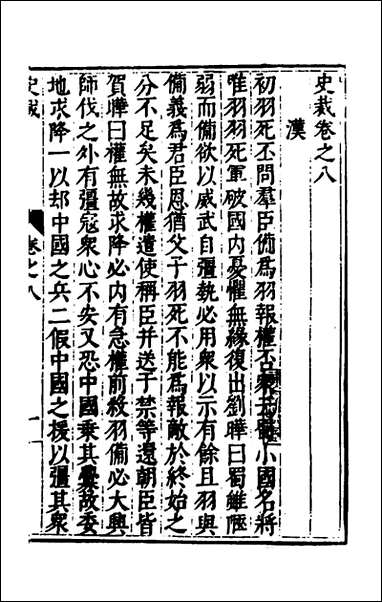 史裁卷之八
漢
初羽死丕問羣臣備爲羽報權否衆小國名將
唯羽羽死軍破國内憂懼無緣復出劉曄曰蜀雖陿
弱而備欲以威武自彊埶必用衆以示有餘且羽與
備義爲君臣恩猶父子羽死不能爲報敵於終始之
分不足矣未幾權遣使稱臣并送于禁等還朝臣皆
賀曄曰權無故求降必内有急權前殺羽備必大興
師伐之外有彊寇衆心不安又恐中國乘其釁故委
地求降一以却中國之兵二假中國之援以彊其衆
史裁
卷之八
一